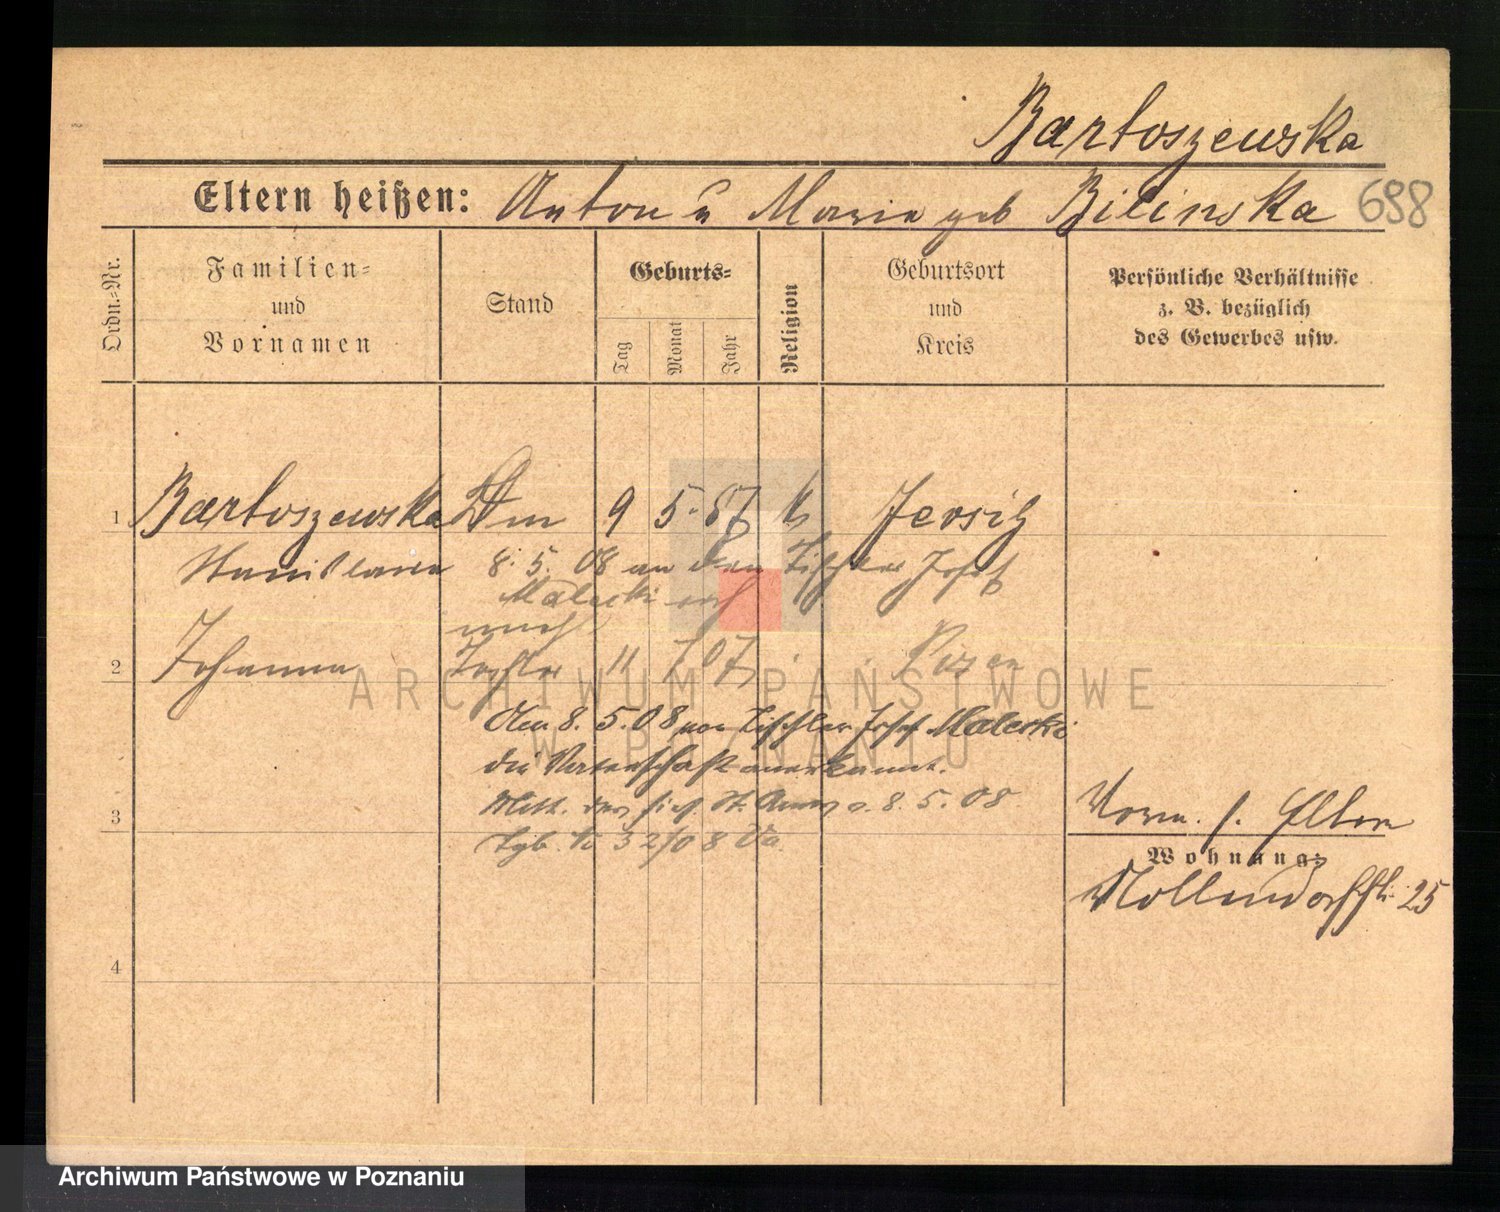 Bartoszewska
Eltern heißen: Anton u Maria geb Bilinska 698
Ordn.=Nr.
Familien=
und
Vornamen
Stand
Geburts=
Tag
Monat
Jahr
Religion
Geburtsort
und
Kreis
Persönliche Verhältnisse
z. B. bezüglich
des Gewerbes usw.
1 Bartoszewska 9 5. 87 k Jersitz
Stanislawa 8. 5. 08 an den Tischler Josef
Malecki
2 Johanna Tochter 11 7 07 Posen
Den 8. 5. 08 von Tischler Josef Malecki
die Vaterschaft anerkannt.
Mitt. des St. Amts v. 8. 5. 08
3
Tgb. No 32/08 Va
Vorm. s. Eltern
Wohnung:
Mollendorffstr. 25
4
ARCHIWUM PAŃSTWOWE
W POZNANIU
Archiwum Państwowe w Poznaniu